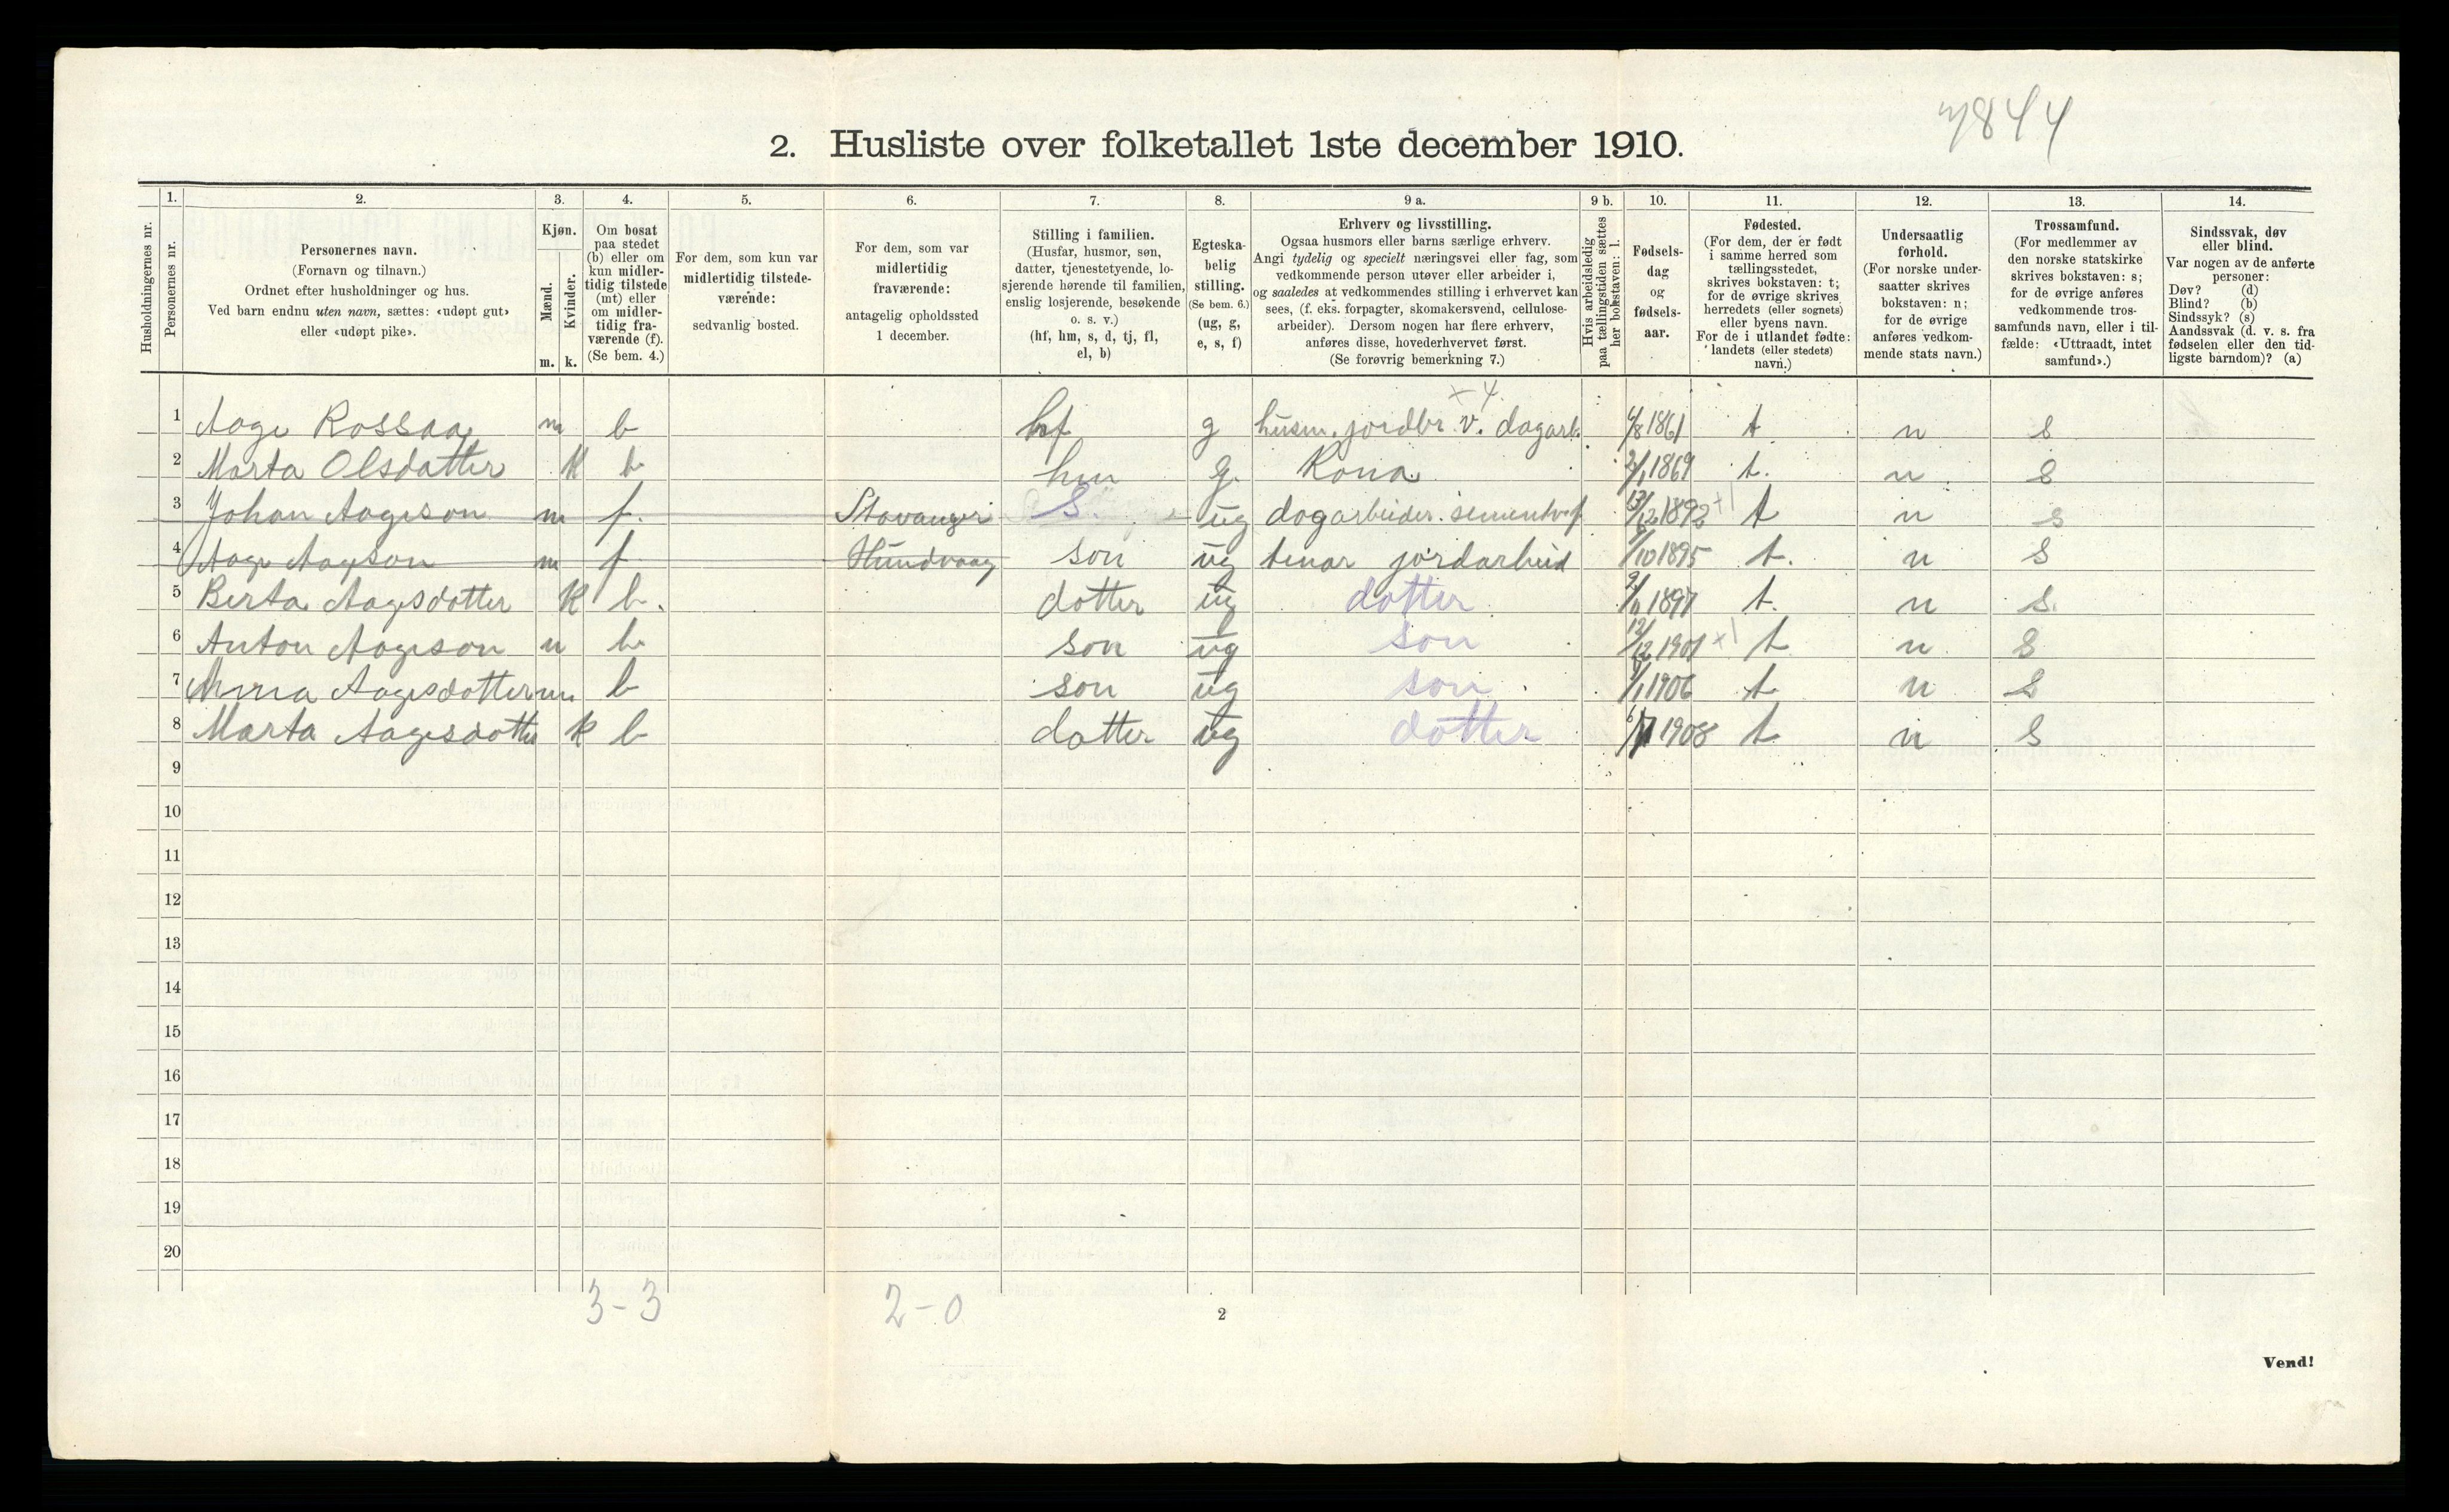 7844
2. Husliste over folketallet 1ste december 1910.
Husholdningernes nr.
1.
Personernes nr.
2.
Personernes navn.
(Fornavn og tilnavn.)
Ordnet efter husholdninger og hus.
Ved barn endnu uten navn, sættes: «udøpt gut»
eller «udøpt pike».
3.
Kjøn.
Mænd.
Kvinder.
m. k.
4.
Om bosat
paa stedet
(b) eller om
kun midler-
tidig tilstede
(mt) eller
om midler-
tidig fra-
værende (f).
(Se bem. 4.)
5.
For dem, som kun var
midlertidig tilstede-
værende:
sedvanlig bosted.
6.
For dem, som var
midlertidig
fraværende:
antagelig opholdssted
1 december.
7.
Stilling i familien.
(Husfar, husmor, søn,
datter, tjenestetyende, lo-
sjerende hørende til familien,
enslig losjerende, besøkende
o. s. v.)
(hf, hm, s, d, tj, fl,
el, b)
8.
Egteska-
belig
stilling.
(Se bem. 6.)
(ug, g,
e, s, f)
9 a.
Erhverv og livsstilling.
Ogsaa husmors eller barns særlige erhverv.
Angi tydelig og specielt næringsvei eller fag, som
vedkommende person utøver eller arbeider i,
og saaledes at vedkommendes stilling i erhvervet kan
sees, (f. eks. forpagter, skomakersvend, cellulose-
arbeider). Dersom nogen har flere erhverv,
anføres disse, hovederhvervet først.
(Se forøvrig bemerkning 7.)
9 b.
Hvis arbeidsledig
paa tællingstiden sættes
her bokstaven: l.
10.
Fødsels-
dag
og
fødsels-
aar.
11.
Fødested.
(For dem, der er født
i samme herred som
tællingsstedet,
skrives bokstaven: t;
for de øvrige skrives
herredets (eller sognets)
eller byens navn.
For de i utlandet fødte:
landets (eller stedets)
navn.)
12.
Undersaatlig
forhold.
(For norske under-
saatter skrives
bokstaven: n;
for de øvrige
anføres vedkom-
mende stats navn.)
13.
Trossamfund.
(For medlemmer av
den norske statskirke
skrives bokstaven: s;
for de øvrige anføres
vedkommende tros-
samfunds navn, eller i til-
fælde: «Uttraadt, intet
samfund».)
14.
Sindssvak, døv
eller blind.
Var nogen av de anførte
personer:
Døv? (d)
Blind? (b)
Sindssyk? (s)
Aandssvak (d. v. s. fra
fødselen eller den tid-
ligste barndom)? (a)
x 4.
1 Aage Rossaa m b hf g husm. jordbr. v. dagarb. 4/8 1861 t n s
2 Marta Olsdatter K b hm g. Kona 2/1 1869 t. n. s
3 Johan Aageson m f. Stavanger S. ug dagarbeider. sementv.f 13/12 1892 +1 t n s
4 Aage Aageson m f Hundvaag son ug tenar jordarbeid /10 1895 t. n s
5 Berta Aagesdotter K b. dotter ug dotter 9/11 1897 t. n s.
6 Anton Aageson m b. son ug son 12/12 1901 x1 t n. s
7 Aagesdotter m b son ug son /1 1906 t n s
8 Marta Aagesdotter k b dotter ug dotter 6/ 1908 t n s
9
10
11
12
13
14
15
16
17
18
19
20
3-3 2-0
2
Vend!